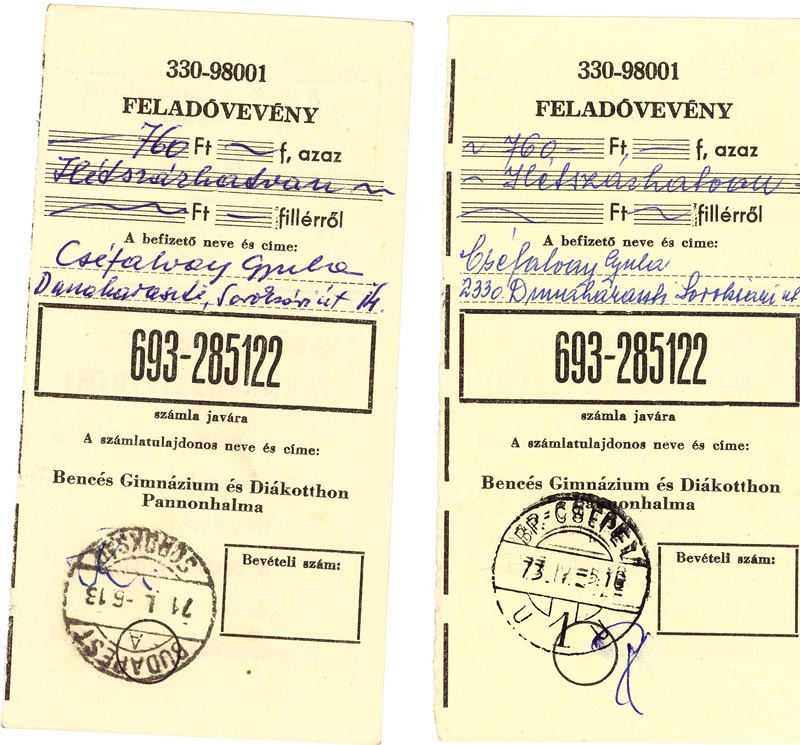 330-98001
FELADÓVEVÉNY
760 Ft f, azaz
Hétszázhatvan
Ft fillérről
A befizető neve és címe:
Cséfalvay Gyula
Dunaharaszti, Soroksári út
693-285122
számla javára
A számlatulajdonos neve és címe:
Bencés Gimnázium és Diákotthon
Pannonhalma
Bevételi szám:
SOROKSÁR
71 I. -6.13
A
BUDAPEST
330-98001
FELADÓVEVÉNY
760 Ft, f, azaz
Hétszázhatvan
Ft fillérről
A befizető neve és címe:
Cséfalvay Gyula
2330 Dunaharaszti Soroksári ut
693-285122
számla javára
A számlatulajdonos neve és címe:
Bencés Gimnázium és Diákotthon
Pannonhalma
Bevételi szám:
BP.-CSEPEL
73.IV.-5.